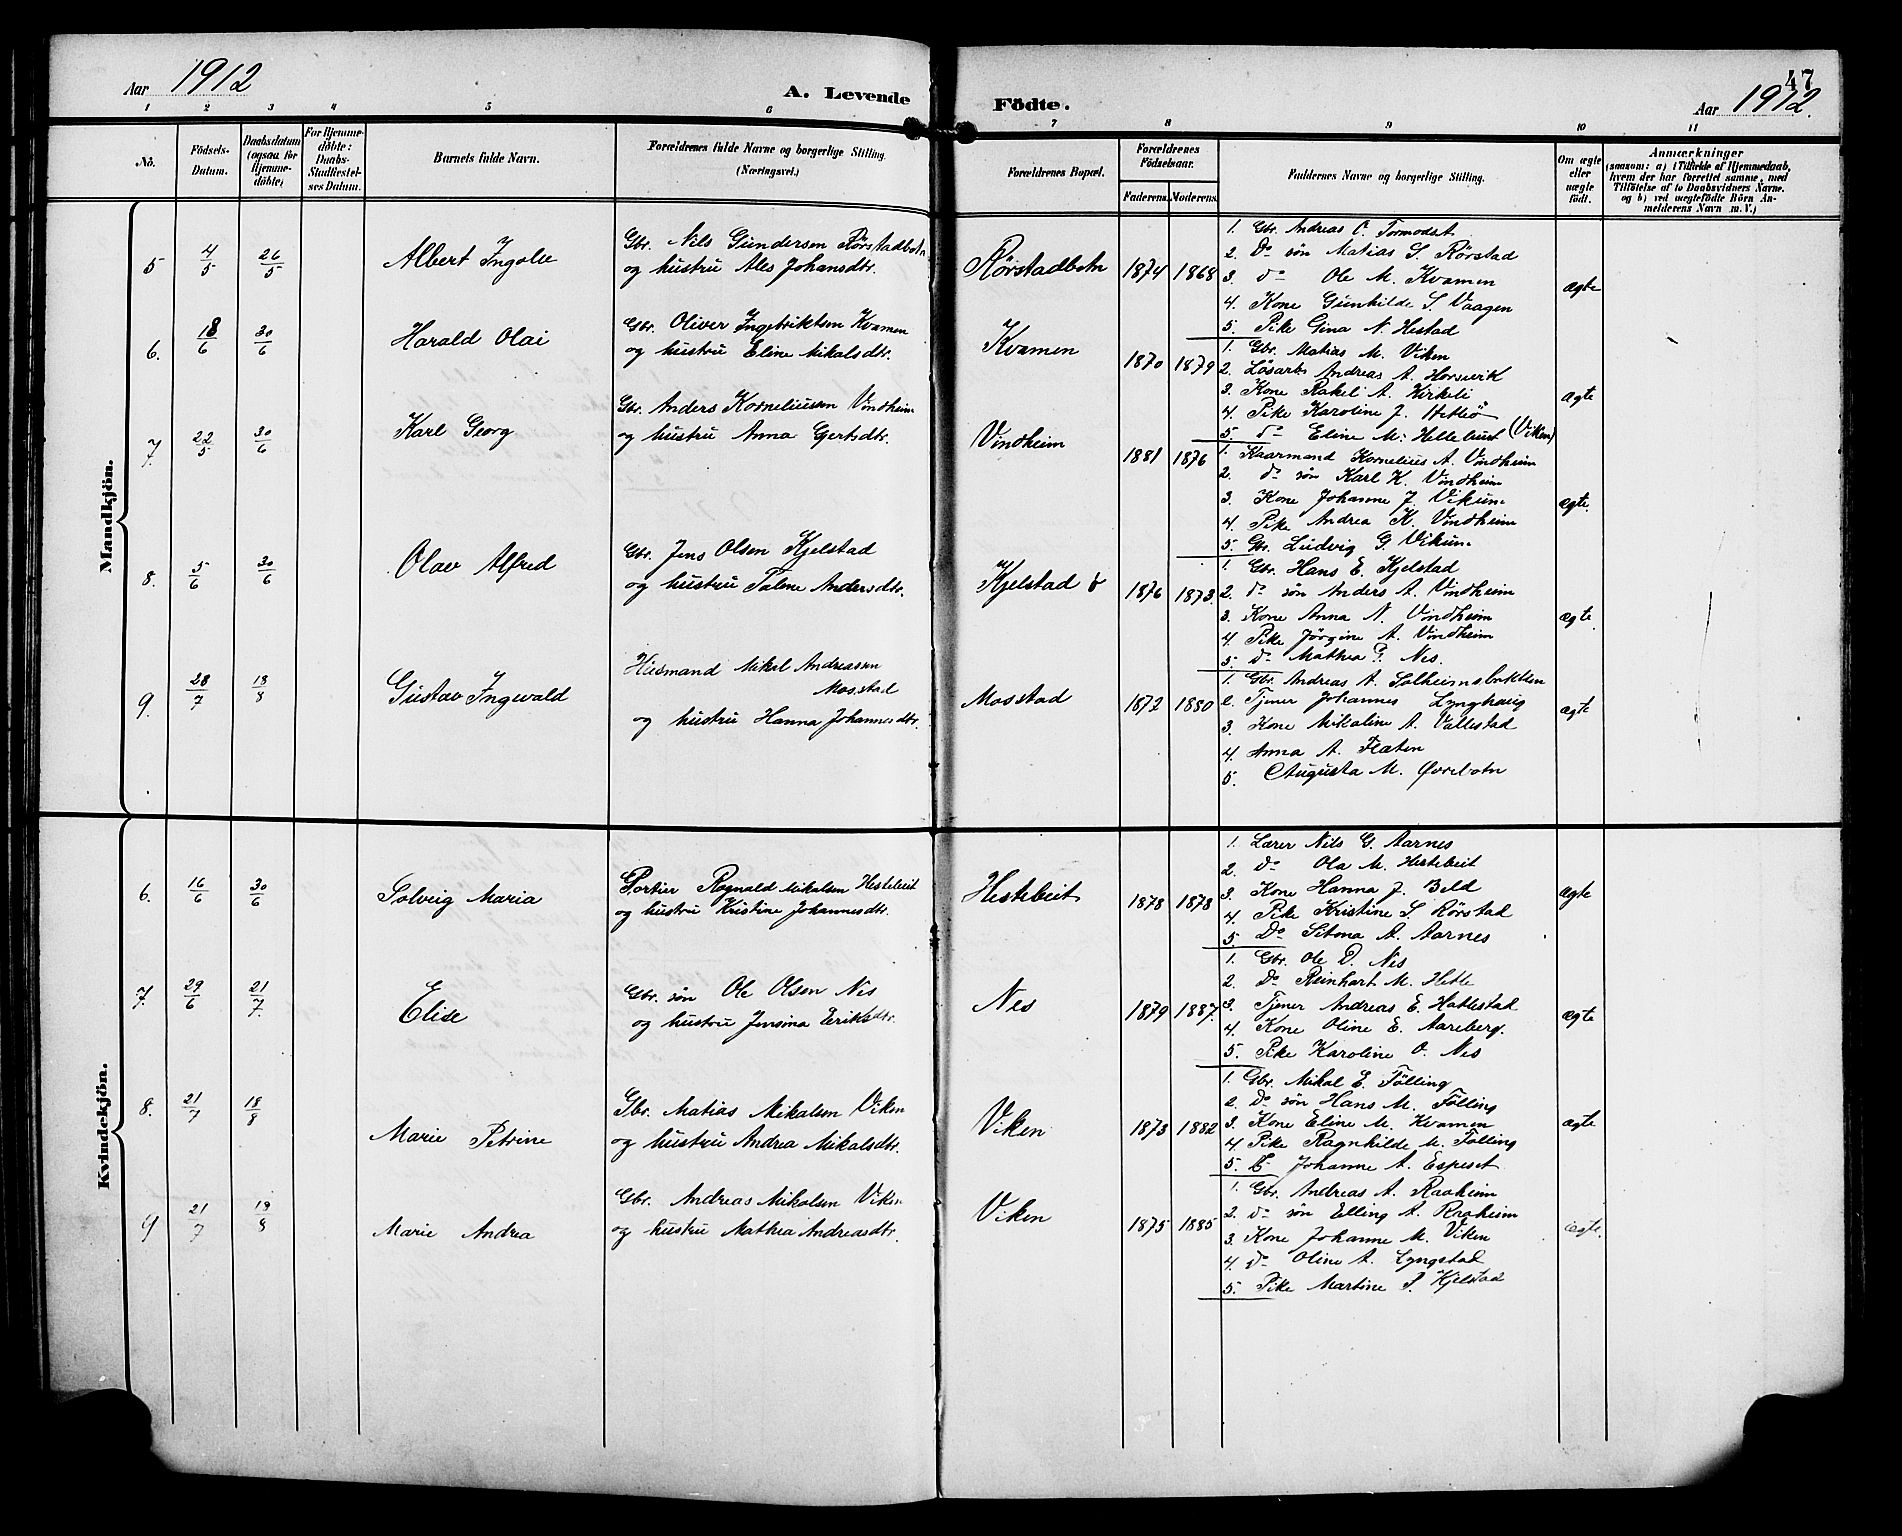 Aar 1912
A. Levende
Födte.
47
Aar 1912.
1 2 3 4 5 6 7 8 9 10 11
No.
Födsels-
Datum.
Daabsdatum
(ogsaa for
Hjemme-
döbte)
For Hjemme-
döbte:
Daabs-
Stadfæstel-
ses Datum.
Barnets fulde Navn.
Forældrenes fulde Navne og borgerlige Stilling.
(Næringsvei.)
Forældrenes Bopæl.
Forældrenes
Födselsaar.
Faderens. Moderens.
Faddernes Navne og borgerlige Stilling.
Om ægte
eller
uægte
födt.
Anmærkninger
(saasom: a) i Tilfælde af Hjemmedaab,
hvem der har forrettet samme, med
Tilföielse af to Daabsvidners Navne.
og b) ved uægtefödte Börn An-
melderens Navn m. V.)
Mandkjön.
5 4/5 26/5 Albert Ingolv
Gbr. Nils Gundersen Rörstadbotn
og hustru Ales Johansdtr.
Rörstadbotn 1874 1868
1. Gbr. Andreas O. Tormodset
2. Do sön Matias S. Rörstad
3. do Ole M. Kvamen
4. Kone Gunhilde S. Vaagen
5. Pike Gina N. Hestad
ægte
6. 18/6 30/6 Harald Olai
Gbr. Oliver Ingebriktsen Kvamen
og hustru Eline Mikalsdtr.
Kvamen 1870 1879
1. Gbr. Matias M. Viken
2. Lösarb. Andreas A. Horsevik
3. Kone Rakel A. Kirkeli
4. Pike Karoline J. Hetleö
5. do Eline M. Hellebust (Viken)
ægte
7. 22/5 30/6 Karl Georg
Gbr. Anders Korneliussen Vindheim
og hustru Anna Gertsdtr.
Vindheim 1881 1876
1. Kaarmand Kornelius A. Vindheim
2. do sön Karl K. Vindheim
3. Kone Johanne J. Vikum
4. Pike Andrea K. Vindheim
5. Gbr. Ludvig G. Vikum
ægte.
8. 5/6 30/6 Olav Alfred
Gbr. Jens Olsen Kjelstad
og hustru Talene Andersdtr.
Kjelstad 1876 1873.
1. Gbr. Hans E. Kjelstad
2. do sön Anders A. Vindheim
3. Kone Anna N. Vindheim
4. Pike Jörgine A. Vindheim
5. do Mathea P. Nes.
ægte
9. 28/7 18/8 Gustav Ingvald
Husmand Mikal Andreassen
Mosstad
og hustru Hanna Johannesdtr.
Mosstad 1872 1880
1. Gbr. Andreas A. Solheimsbukten
2. Tjener Johannes Lynghaug
3. Kone Mikaline A. Vallestad
4. Anna A. Flaten
5. Augusta M. Övrebotn
ægte
Kvindekjön.
6. 16/6 30/6 Solveig Maria
Portier Ragnald Mikalsen Hestebeit
og hustru Kristine Johannesdtr.
Hestebeit 1878 1878
1. Lærer Nils G. Aarnes
2. do Ola M. Hestebeit
3. Kone Hanna J. Beld
4. Pike Kristine S. Rörstad
5. Do A. Aarnes
ægte
7. 29/6 21/7. Elise
Gbr. sön Ole Olsen Nes
og hustru Jensina Eriksdtr.
Nes 1879 1887.
1. Gbr. Ole D. Nes
2. Do Reinhart M. Hetle
3. Tjener Andreas E. Hatlestad
4. Kone Oline E. Aareberg.
5. Pike Karoline O. Nes
ægte
8. 21/7 18/8 Marie Petrine
Gbr. Matias Mikalsen Viken
og hustru Andrea Mikalsdtr.
Viken 1873 1882
1. Gbr. Mikal E. Fölling
2. Do sön Hans M. Fölling
3. Kone Eline M. Kvamen
4. Pike Ragnhilde M. Fölling
5. Johanne A. Espeset
ægte
9 21/7 18/8 Marie Andrea
Gbr. Andreas Mikalsen Viken
og hustru Mathea Andreasdtr.
Viken 1875 1885
1. Gbr. Andreas A. Raaheim
2. do sön Elling A. Raaheim
3. Kone Johanne M. Viken
4. Do Oline A. Lyngstad
5. Pike Martine P. Kjelstad
ægte.